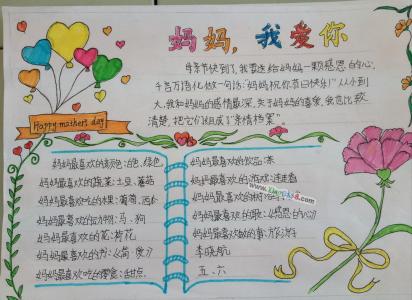 妈妈，我爱你
母亲节快到了,我要送给妈妈一颗感恩的心,
千言万语化做一句话:"妈妈祝你节日快乐!"从小到
大,我和妈妈的感情最深,关于妈妈的喜爱,我也比较
清楚,把它们组成了"亲情档案"。
Happy mother's day
妈妈最喜欢的颜色:白色、绿色
妈妈最喜欢的蔬菜:土豆、蘑菇
妈妈最喜欢吃的水果:葡萄、西
妈妈最喜欢的动物:马、狗
妈妈最喜欢的花:荷花
妈妈最喜欢的书:《简·爱》
妈妈最喜欢吃的零食:甜点
妈妈最喜欢的饮品:茶
妈妈最喜欢的游戏:连连看
妈妈最喜欢的
妈妈最喜欢的歌:《感恩的心》
妈妈最喜欢做的事:旅游
李晓航
五、六